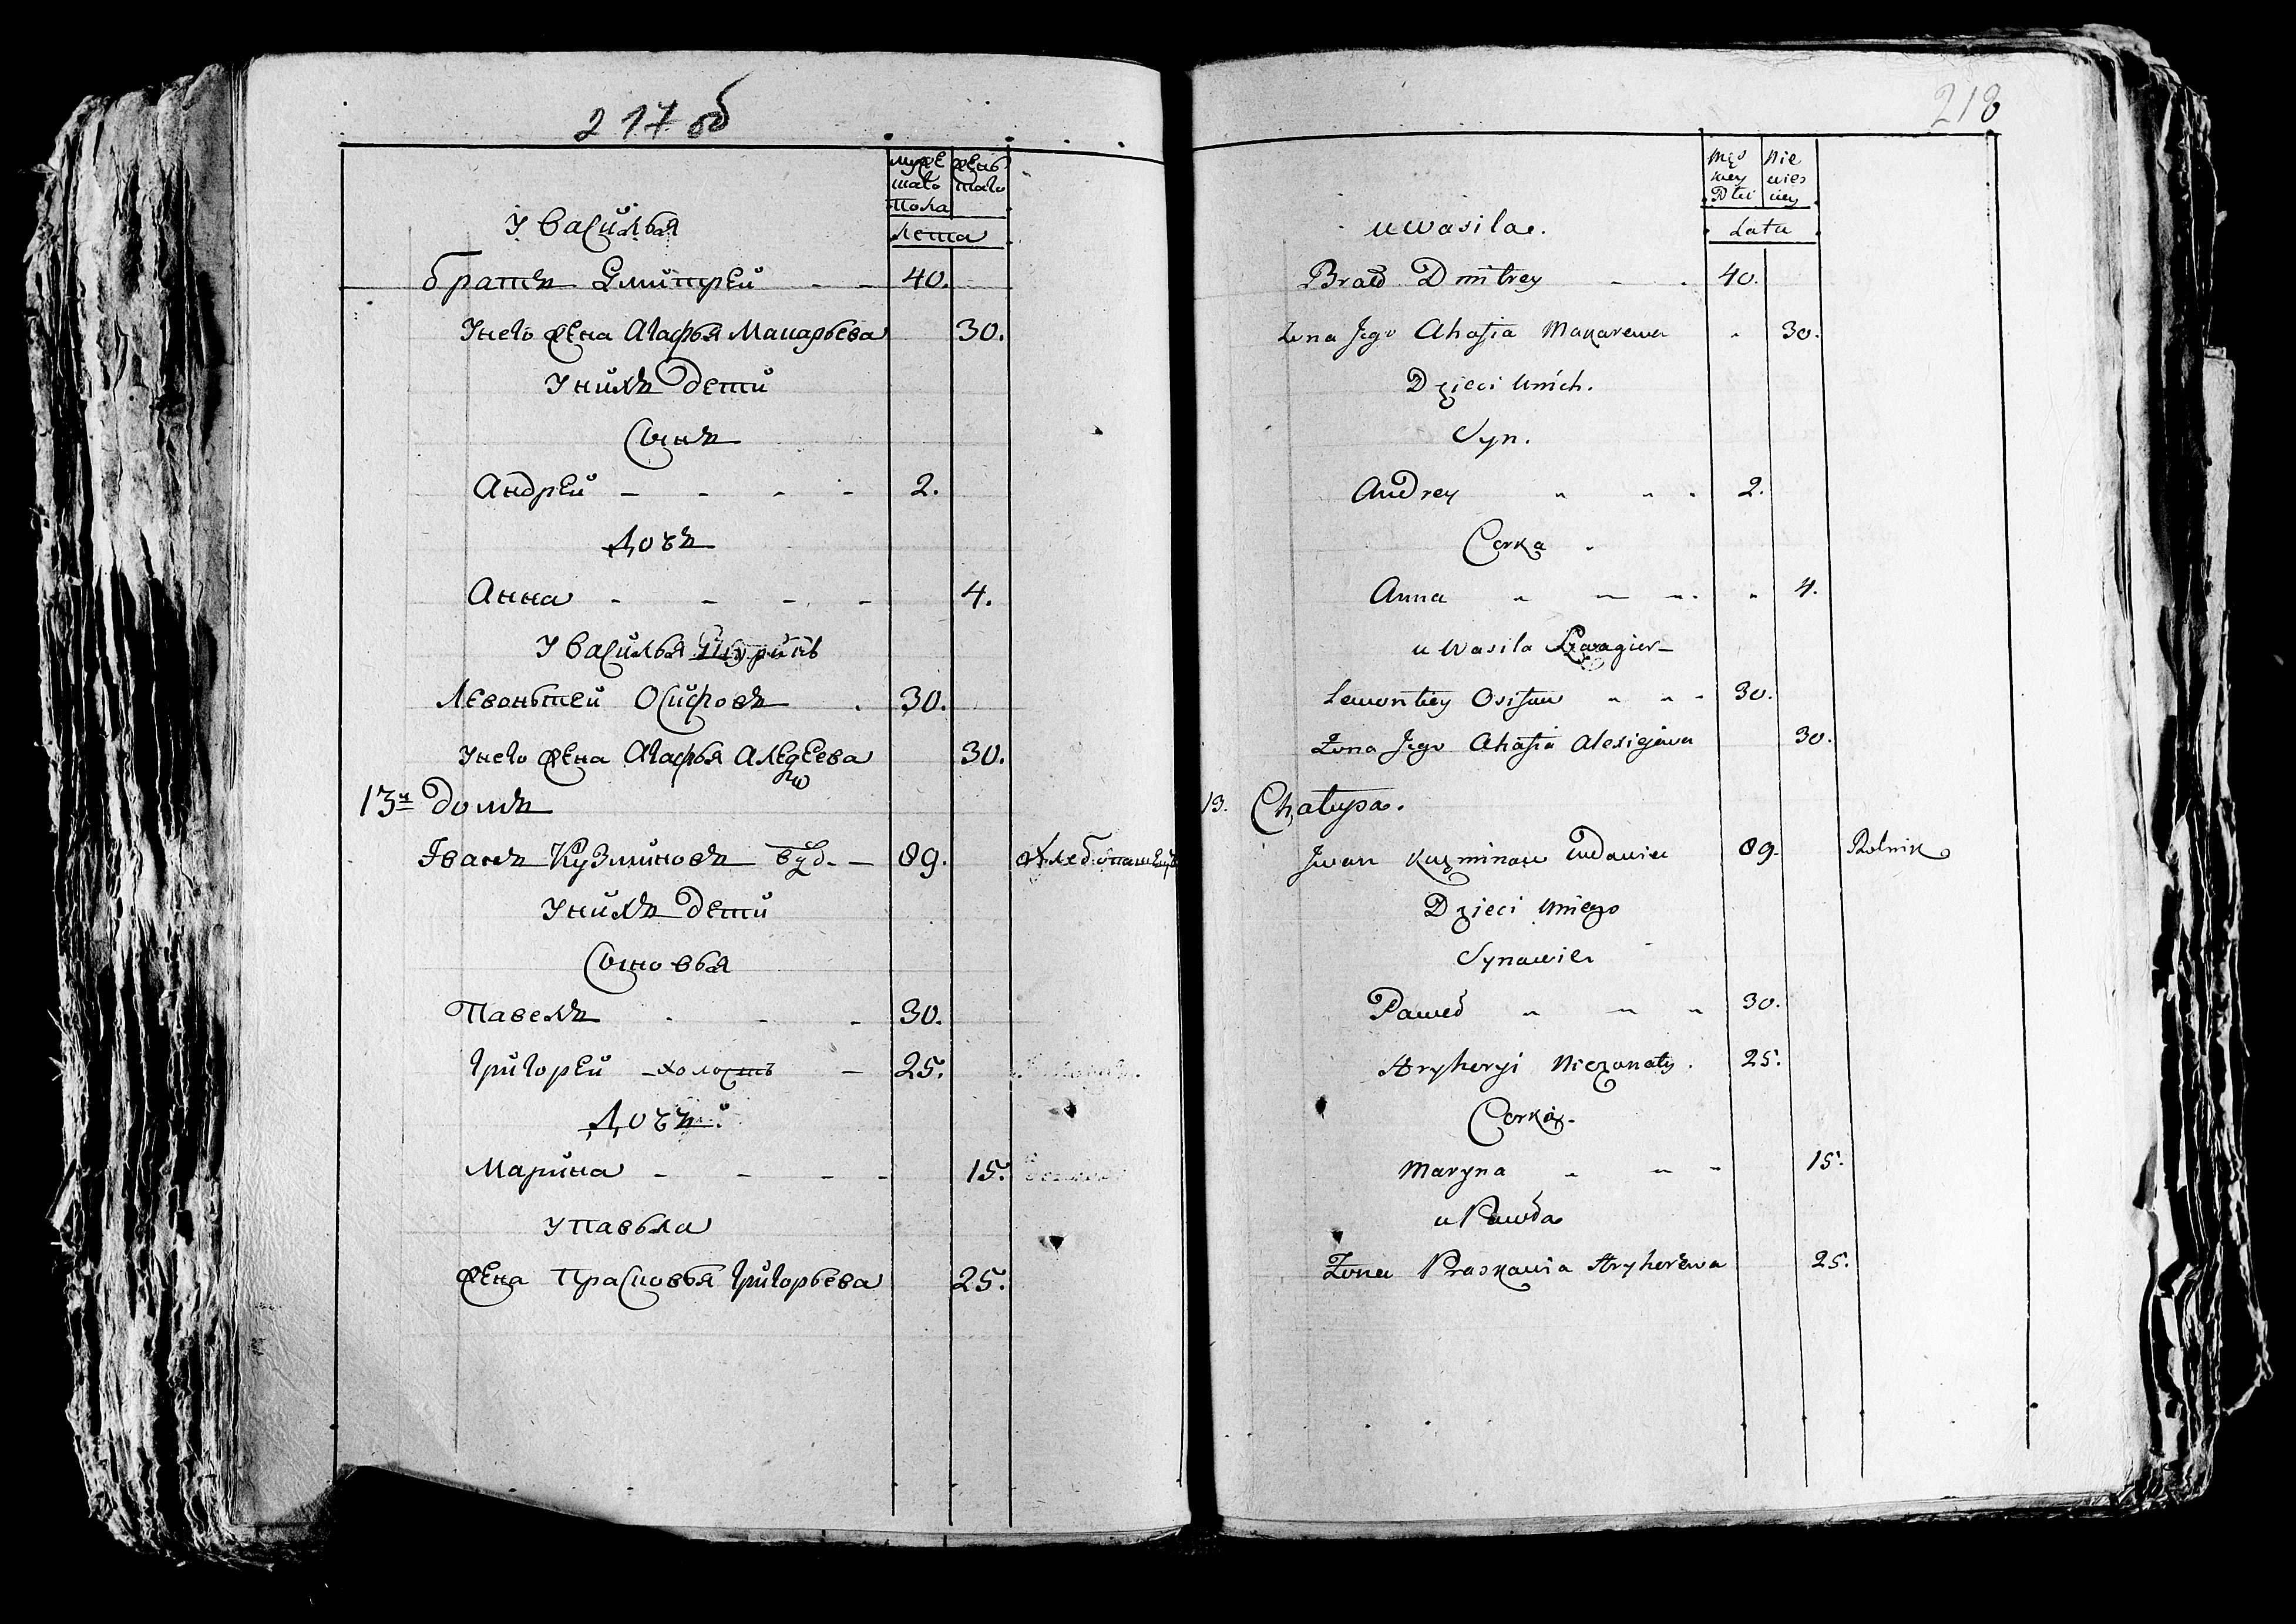 217 об
муже женъ
шаго шаго
пола
лета
У Василья
братъ Дмитрей - - 40.
У него жена Агафья Макарьева 30.
У нихъ дети
Сынъ
Андрей - - - - 2.
Дочъ
Анна - - - - 4.
У Василья Шуринъ
Левонтей Осифовъ . 30.
У него жена Агафья Алеѯеева 30.
13й домъ
Іванъ Кузминовъ вдъ. - 89. хлебопашецъ
У нихъ дети
Сыновья
Павелъ - - - 30.
Григорей - холостъ - 25.
Дочъ
Марина - - - - 15.
У Павъла
жена Прасковья Григорьева 25.
218
Męs Nie
kiey wies
Płci ciey
Lata
u Wasila.
Brat Dmitrey - . 40.
Żona Jego Ahafia Makarewa " 30.
Dzieci u nich.
Syn.
Andrey " " " 2.
Corka .
Anna " " " " 4.
u Wasila Szwagier
Lewontiey Osifow " " " 30.
Żona Jego Ahafia Alexiejewa 30.
13. Chałupa.
Jwan Kuzminow wdowiec 89. Rolnik
Dzieci u niego
Synowie
Paweł " " " 30.
Hryhoryi Nieżonaty . 25.
Corka.
Maryna " " " 15.
u Pawła
Żona Praskowia Hryhorewa 25.